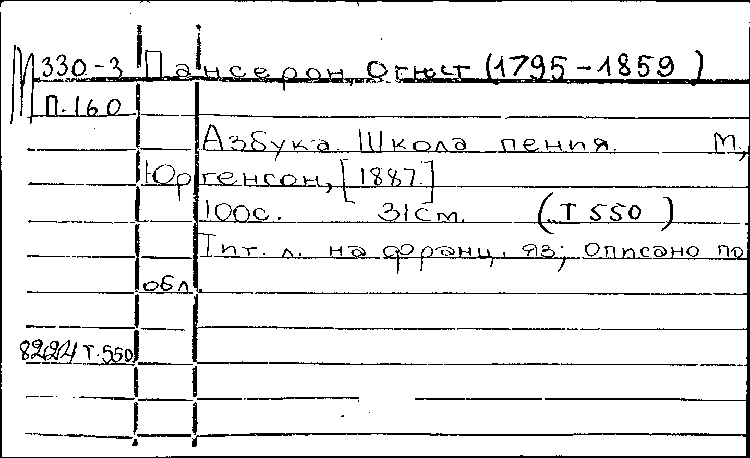 М 330-3 Пансерон, Огюст (1795-1859)
П.160
Азбука Школа пения. М,
Юргенсон, [1887.]
100с. 31см. (Т 550)
Тит. л. на франц. яз; описано по
обл
8224 Т.550